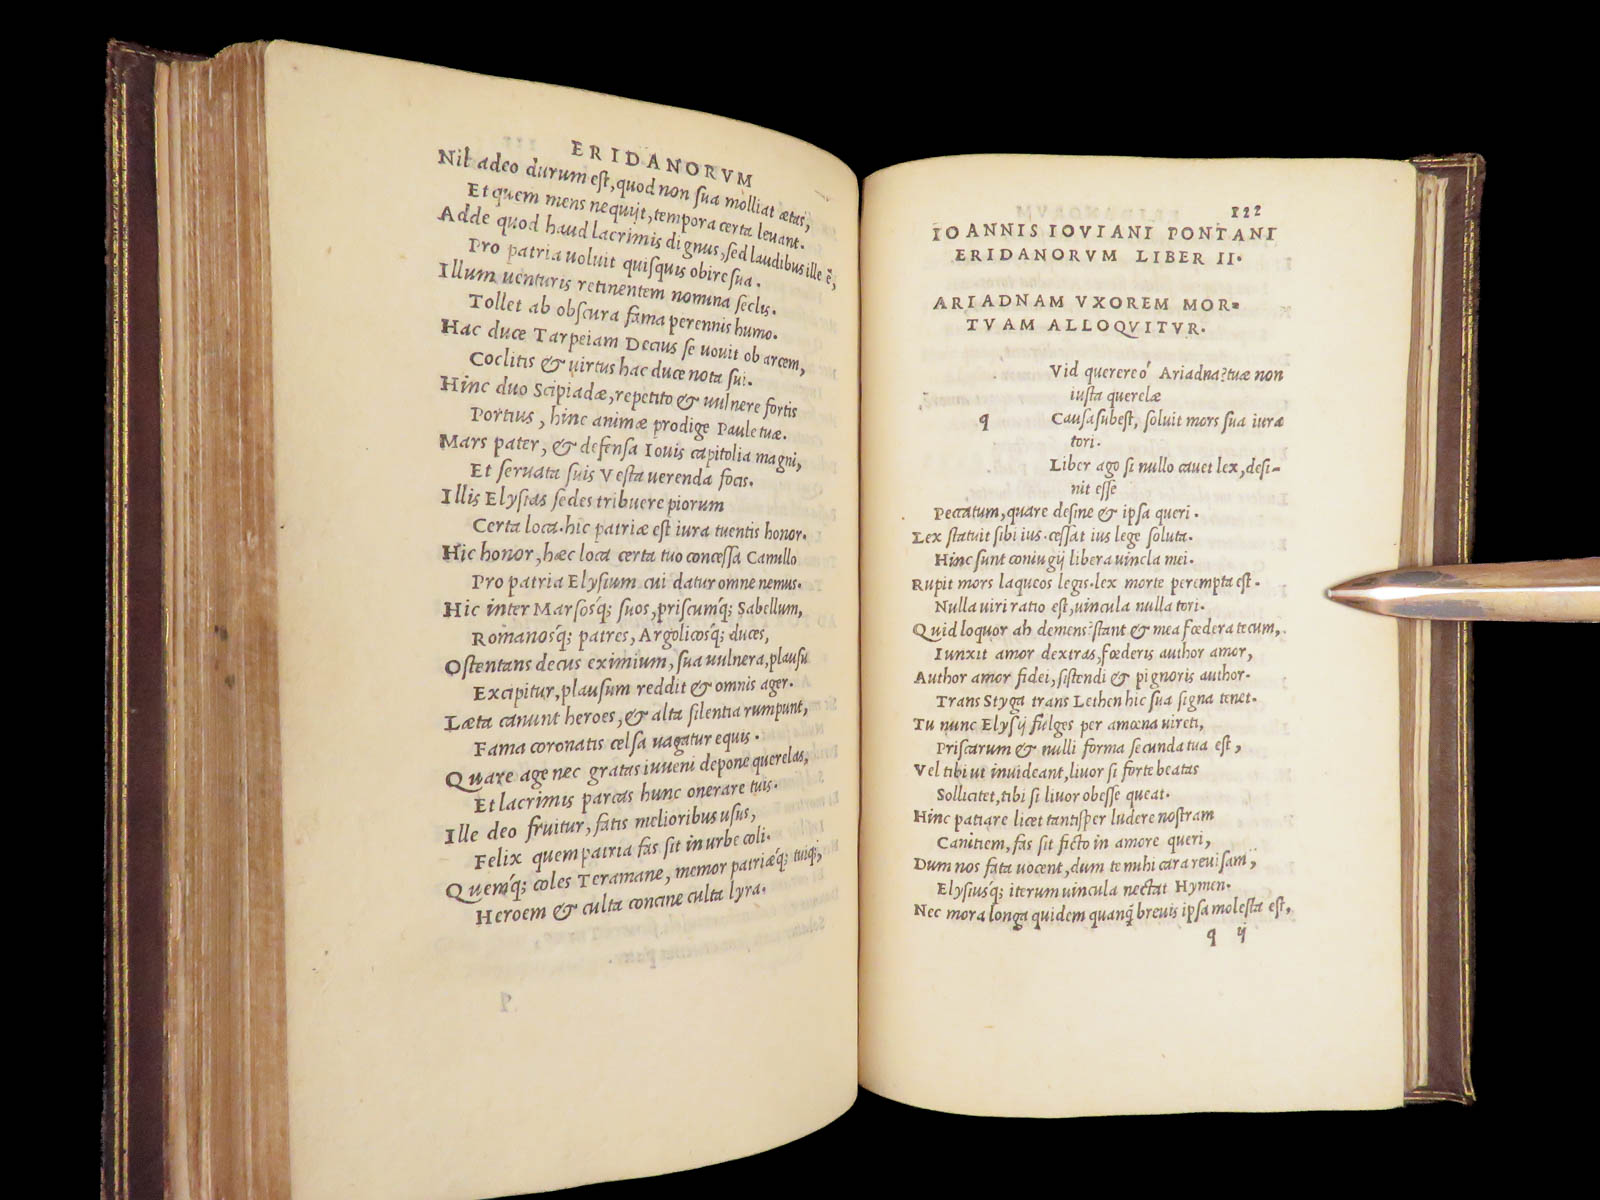 ERIDANORVM
Nil adeo durum est, quod non sua molliat ætas,
Et quem mens nequijt, tempora certa leuant.
Adde quod haud lacrimis dignus, sed laudibus ille ē,
Pro patria uoluit quisquis obire sua.
Illum uenturis retinentem nomina seclis.
Tollet ab obscura fama perennis humo.
Hac duce Tarpeiam Decius se uouit ob arcem,
Coclitis & uirtus hac duce nota sui.
Hinc duo Scipiadæ, repetito & uulnere fortis
Portius, hinc animæ prodige Paule tuæ.
Mars pater, & defensa Iouis capitolia magni,
Et seruata suis Vesta uerenda focis.
Illis Elysias sedes tribuere piorum
Certa loca. hic patriæ est iura tuentis honor.
Hic honor, hæc loca certa tuo concessa Camillo
Pro patria Elysium cui datur omne nemus.
Hic inter Marsosq; suos, priscumq; Sabellum,
Romanosq; patres, Argolicosq; duces,
Ostentans decus eximium, sua uulnera, plausu
Excipitur, plausum reddit & omnis ager.
Læta canunt heroes, & alta silentia rumpunt,
Fama coronatis celsa uagatur equis.
Quare age nec gratas iuueni depone querelas,
Et lacrimis parcas hunc onerare tuis.
Ille deo fruitur, fatis melioribus usus,
Felix quem patria fas sit in urbe coli.
Quemq; coles Teramane, memor patriæq; tuiq;,
Heroem & culta concine culta lyra.
122
IOANNIS IOVIANI PONTANI
ERIDANORVM LIBER II.
ARIADNAM VXOREM MOR=
TVAM ALLOQVITVR.
q Vid querere ó Ariadna? tuæ non
iusta querelæ
Causa subest, soluit mors sua iura
tori.
Liber ago si nullo cauet lex, desi-
nit esse
Peccatum, quare desine & ipsa queri.
Lex statuit sibi ius. cessat ius lege soluta.
Hinc sunt coniugij libera uincla mei.
Rupit mors laqueos legis. lex morte perempta est.
Nulla uiri ratio est, uincula nulla tori.
Quid loquor ah demens? stant & mea fœdera tecum,
Iunxit amor dextras, fœderis author amor,
Author amor fidei, sistendi & pignoris author.
Trans Styga trans Lethen hic sua signa tenet.
Tu nunc Elysij fulges per amœna uireti,
Priscarum & nulli forma secunda tua est,
Vel tibi ut inuideant, liuor si forte beatas
Sollicitet, tibi si liuor obesse queat.
Hinc patiare licet tantisper ludere nostram
Canitiem, fas sit ficto in amore queri,
Dum nos fata uocent, dum te mihi cara reuisam,
Elysiusq; iterum uincula nectat Hymen.
Nec mora longa quidem quanq̃ breuis ipsa molesta est,
q ij